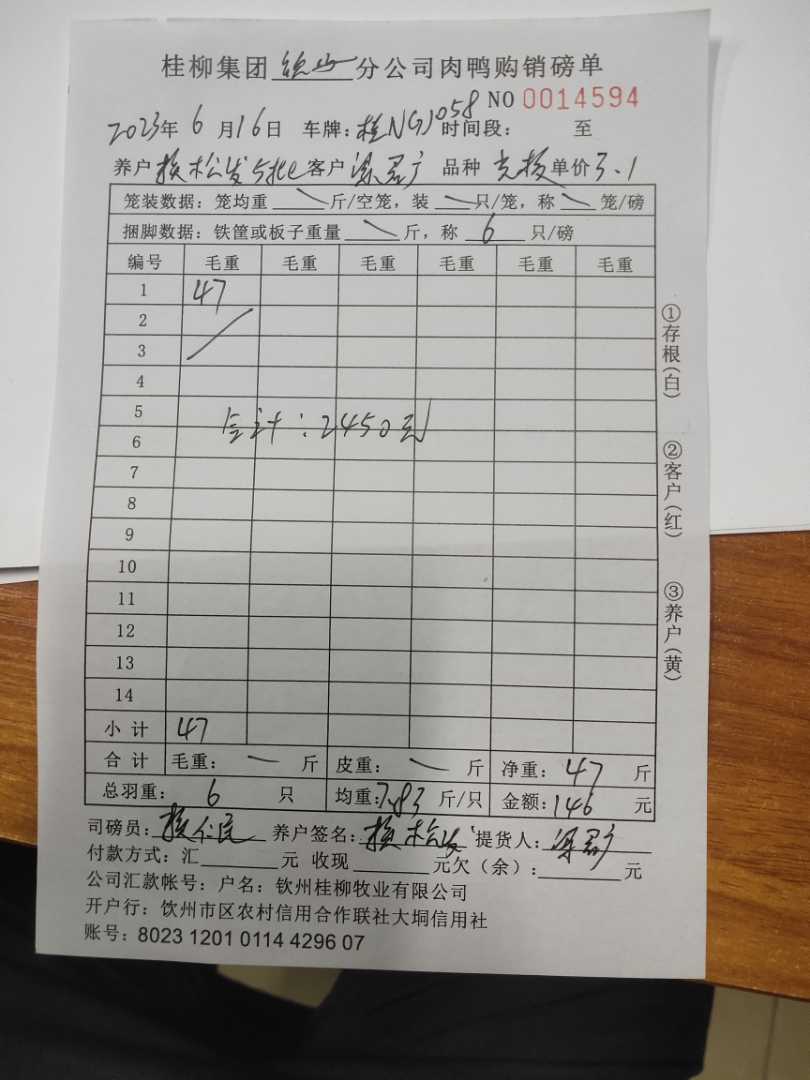 桂柳集团 分公司肉鸭购销磅单
NO 0014594
2023年 6 月 16 日 车牌：桂NGJ058 时间段： 至
养户 松发5批 客户 品种 单价 3.1
笼装数据：笼均重 斤/空笼，装 只/笼，称 笼/磅
捆脚数据：铁筐或板子重量 斤，称 6 只/磅
编号 毛重 毛重 毛重 毛重 毛重 毛重
1 47
2
3
4
5
合计：2450元
6
7
8
9
10
11
12
13
14
小 计 47
合 计 毛重： 斤 皮重： 斤 净重：47 斤
总羽重： 6 只 均重：7.83 斤/只 金额：146 元
司磅员： 养户签名： 松发 提货人：
付款方式：汇 元 收现 元欠（余）： 元
公司汇款帐号：户名：钦州桂柳牧业有限公司
开户行：饮州市区农村信用合作联社大垌信用社
账号：8023 1201 0114 4296 07
①存根(白)
②客户(红)
③养户(黄)